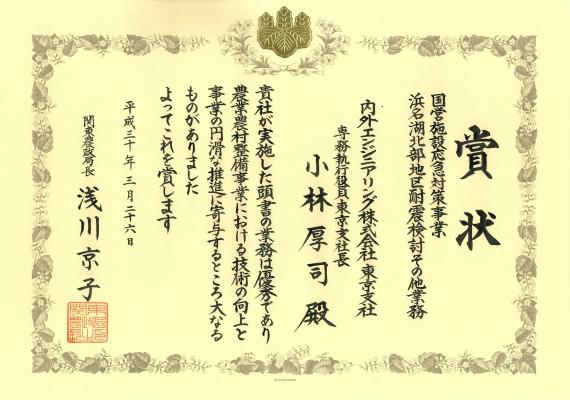 賞状
国営施設応急対策事業
浜名湖北部地区耐震検討その他業務
内外エンジニアリング株式会社 東京支社
専務執行役員東京支社長
小林厚司殿
貴社が実施した頭書の業務は優秀であり
農業農村整備事業における技術の向上と
事業の円滑な推進に寄与するところ大なる
ものがありました
よってこれを賞します
平成三十年三月二十六日
関東農政局長
浅川京子